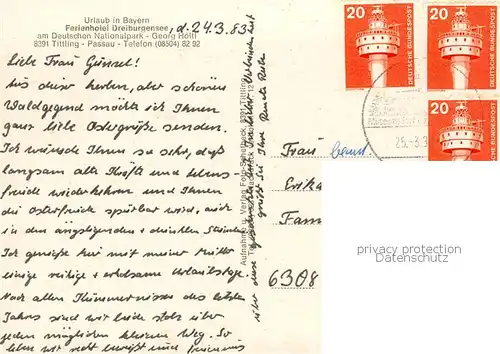 Urlaub in Bayern
Ferienhotel Dreiburgensee
am Deutschen Nationalpark - Georg Höltl
8391 Tittling - Passau - Telefon (08504) 82 92
d. 24.3.83
Liebe Frau Günsel!
Aus dieser herben, aber schönen
Waldgegend möchte ich Ihnen
ganz liebe Ostergrüße senden.
Ich wünsche Ihnen so sehr, daß
langsam alle Kräfte und Lebens-
freude wiederkehren und Ihnen
die Osterfreude spürbar wird, auch
in den angstigenden + dunklen Stunden.
Ich genieße hier mit meiner Mutter
einige ruhige + erholsame Urlaubstage.
Nach allen Kümmernissen des letzten
Jahres sind wir beide stolz über
jeden möglichen kleinen Weg. So
leben wir recht
grüßt Sie Ihre Renate
Aufnahme u. Verlag Foto
8391 Tittling
Frau
Erika
Fam
6308
20
DEUTSCHE BUNDESPOST
20
DEUTSCHE BUNDESPOST
20
CHE BUNDESPOST
25.-3.
privacy protection
Datenschutz